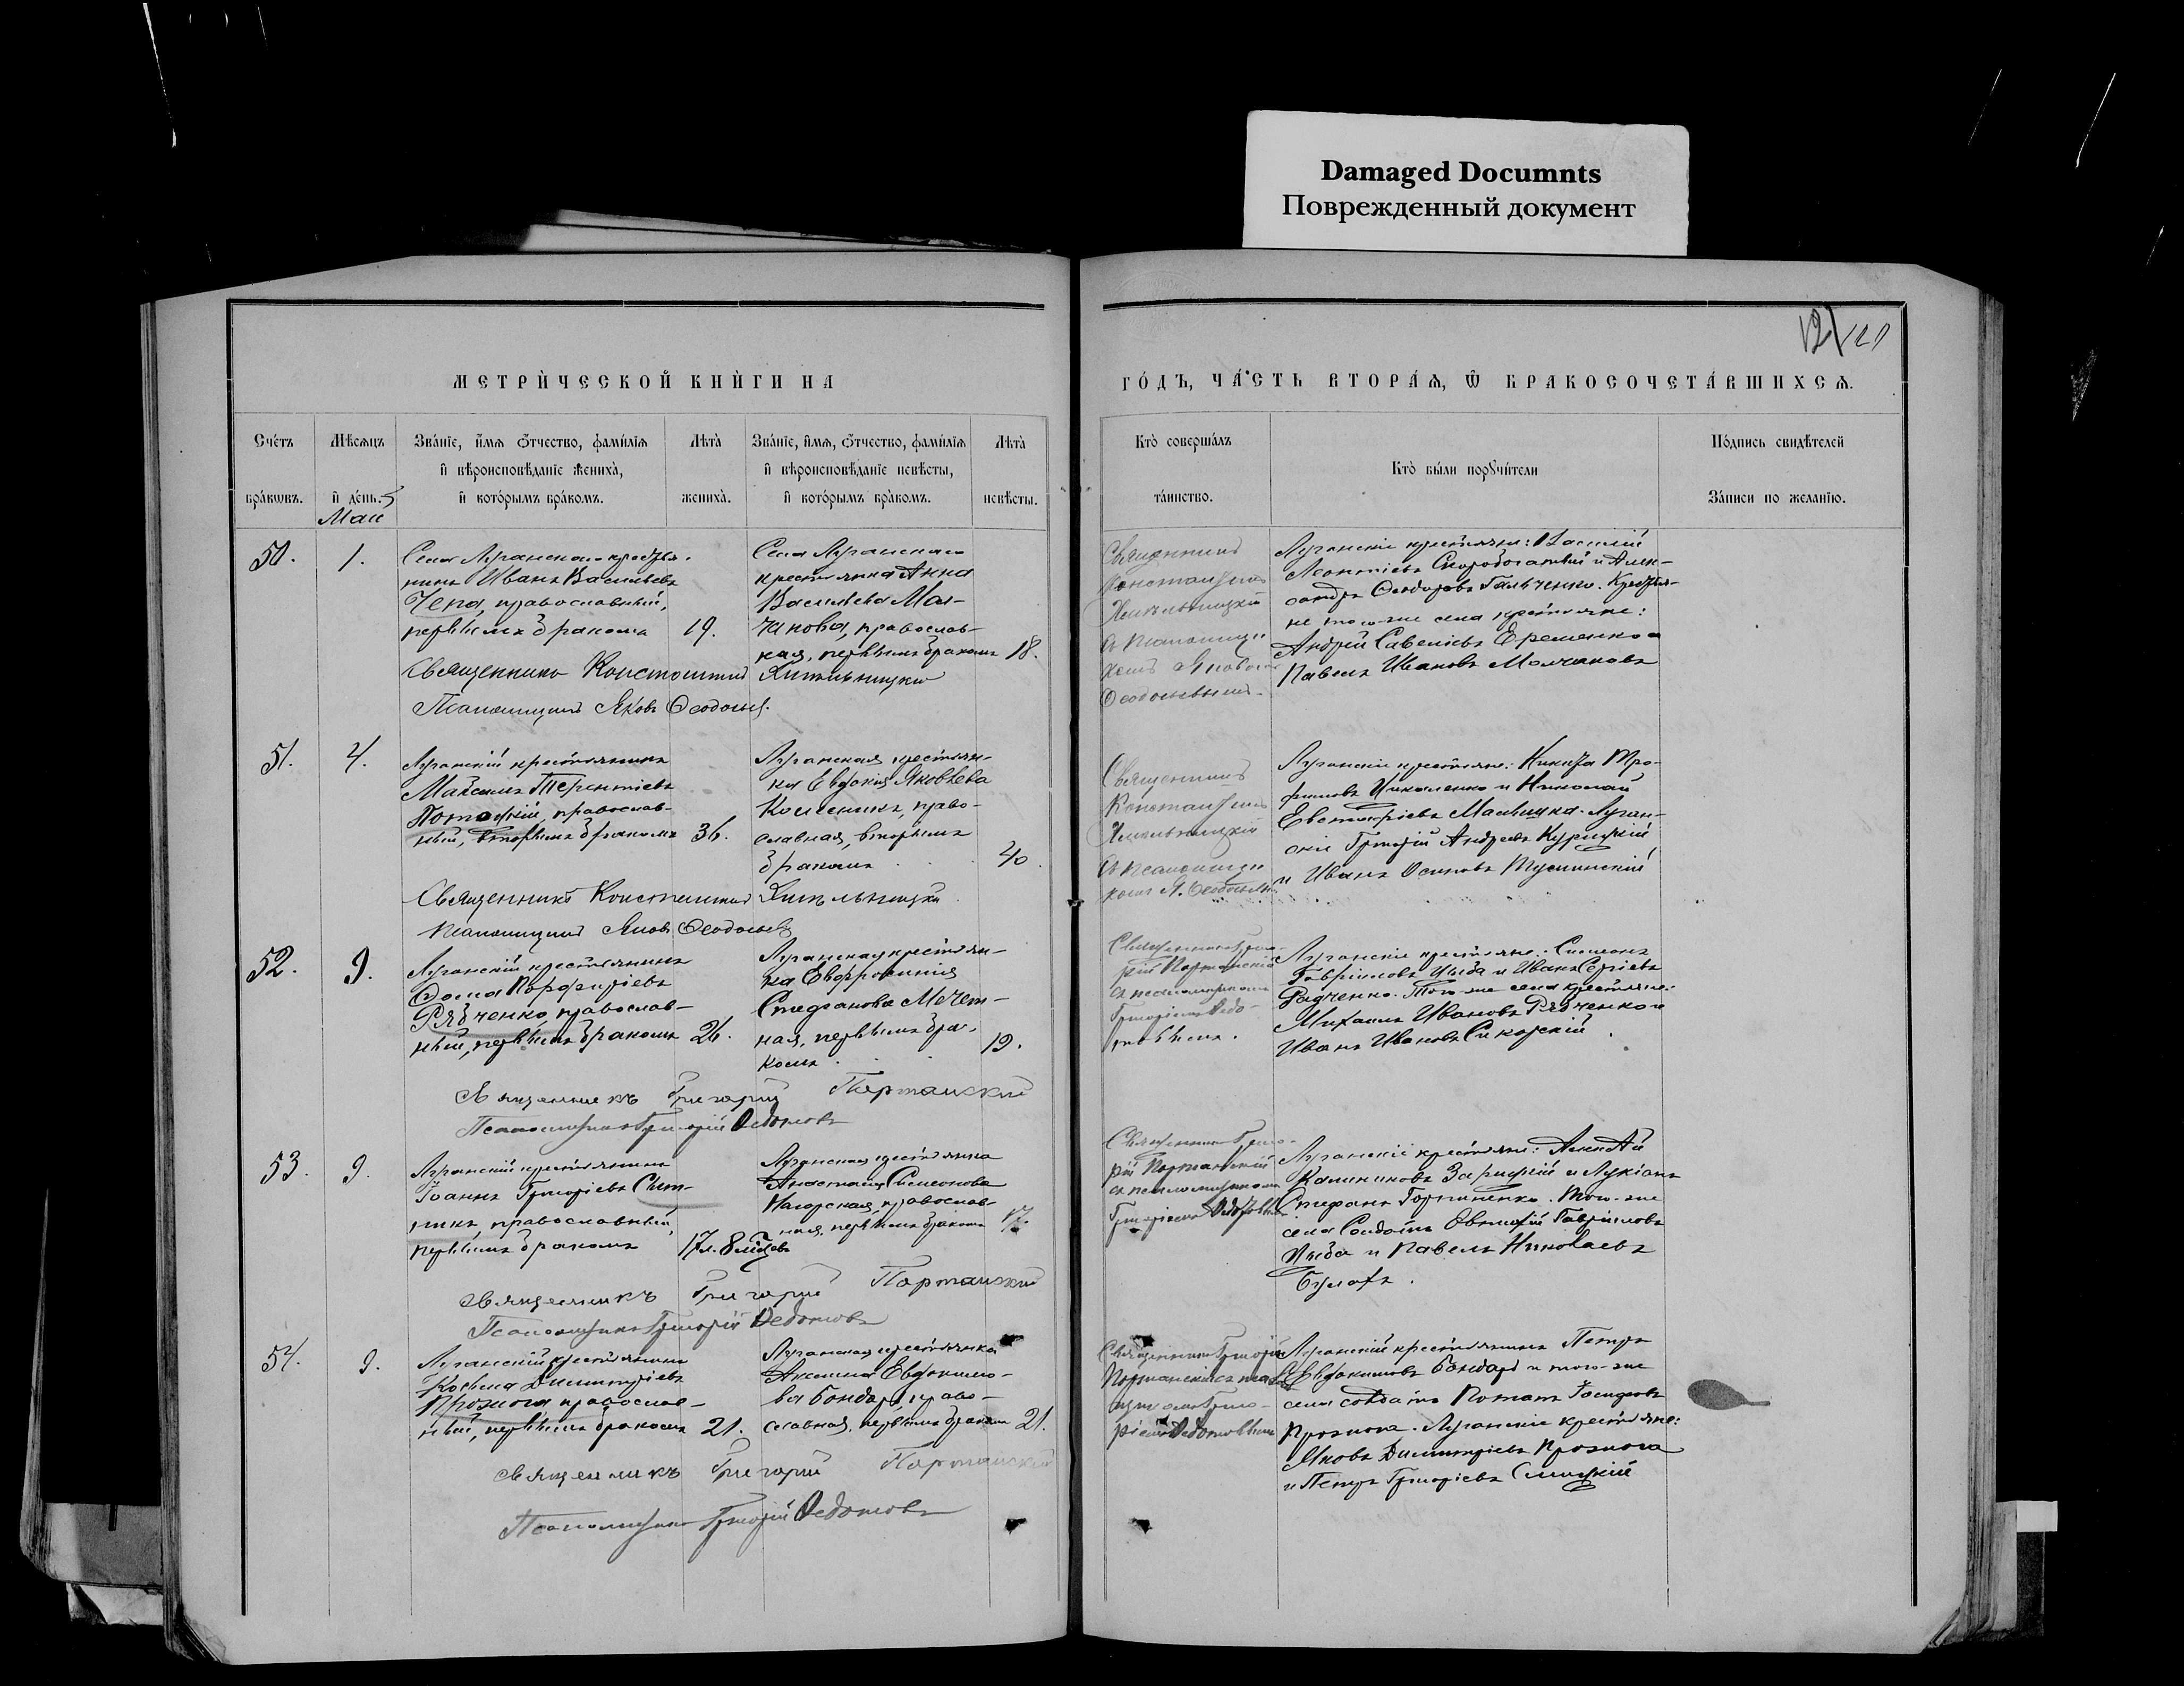 Damaged Documnts
Поврежденный документ
121
МЕТРИЧЕСКОЙ КНИГИ НА
ГОДЪ, ЧАСТЬ ВТОРАЯ, Ѿ БРАКОСОЧЕТАВШИХСЯ.
Счетъ
браковъ.
Мѣсяцъ
и день.
Маи
Званіе, имя, отчество, фамилія
и вѣроисповѣданіе жениха,
и которымъ бракомъ.
Лѣта
жениха.
Званіе, имя, отчество, фамилія
и вѣроисповѣданіе невѣсты,
и которымъ бракомъ.
Лѣта
невѣсты.
Кто совершалъ
таинство.
Кто были поручители
Подпись свидѣтелей
записи по желанію.
50.
1.
Села Луганскаго крестья-
нинъ Иванъ Васильевъ
Чепа, православный,
первымъ бракомъ
19.
Села Луганскаго
крестьянка Анна
Васильева Мол-
чанова, православ-
ная, первымъ бракомъ
18.
Священникъ
Константинъ
съ псаломщи
комъ Яковомъ
Ѳеодосьевымъ
Луганскіе крестьяне: Василій
Леонтіевъ Скоробогатый и Алек-
сандръ Ѳеодоровъ Гальченко. Крестья-
не того-же села крестьяне:
Андрей Савеліевъ Еременко и
Павелъ Ивановъ Молчановъ
Священникъ Константинъ
Псаломщикъ Яковъ Ѳеодосьев
51.
4.
Луганскій крестьянинъ
Максимъ Терентіевъ
православ-
ный, вторымъ бракомъ
36.
Луганская крестьян-
ка Евдокія Яковлева
Колесникъ, право-
славная, вторымъ
бракомъ
40.
Священникъ
Константинъ
съ псаломщи
комъ Я. Ѳеодосьев
Луганскіе крестьяне: Никита Тро-
фимовъ Николенко и Николай
Евстафіевъ Луган-
скіе Григорій Андреевъ Курицкій
и Иванъ Осиповъ
Священникъ Константинъ
псаломщикъ Яковъ Ѳеодосьев
52.
9.
Луганскій крестьянинъ
Ѳома Порфиріевъ
Рябченко, православ-
ный, первымъ бракомъ
26.
Луганская крестьян-
ка Евфросинія
Стефанова Мечет-
ная, первымъ бра-
комъ
19.
Священникъ Григо-
рій Портанскій
съ псаломщикомъ
Григоріемъ Ѳедо-
товымъ.
Луганскіе крестьяне: Симеонъ
Гавріиловъ Цыба и Иванъ Сергіевъ
Радченко. Того-же села крестьяне:
Михаилъ Ивановъ Рябченко и
Иванъ Ивановъ Сикорскій.
Священникъ Григорій Портанскій
Псаломщикъ Григорій Ѳедотовъ
53.
9.
Луганскій крестьянинъ
Іоаннъ Григоріевъ Сит-
никъ, православный,
первымъ бракомъ
17 л. 8 мѣсяцевъ
Луганская крестьянка
Анастасія Симеонова
Нагорская, православ-
ная, первымъ бракомъ
17.
Священникъ Григо-
рій Портанскій
съ псаломщикомъ
Григоріемъ Ѳедотовымъ
Луганскіе крестьяне: Алексѣй
Калиниковъ и Лукіанъ
Стефановъ Того-же
села Солдаты Гавріиловъ
Цыба и Павелъ Николаевъ
Булахъ.
Священникъ Григорій Портанскій
Псаломщикъ Григорій Ѳедотовъ
54.
9.
Луганскій крестьянинъ
Косьма Димитріевъ
православ-
ный, первымъ бракомъ
21.
Луганская крестьянка
Акилина Евдокимо-
ва Бондарь, право-
славная, первымъ бракомъ
21.
Священникъ Григорій
Портанскій съ псалом-
щикомъ Григо-
ріемъ Ѳедотовымъ
Луганскій крестьянинъ Петръ
Евдокимовъ Бондарь и того-же
села солдатъ Потапъ Іосифовъ
Луганскіе крестьяне:
Яковъ Димитріевъ
и Петръ Григоріевъ
Священникъ Григорій Портанскій
Псаломщикъ Григорій Ѳедотовъ